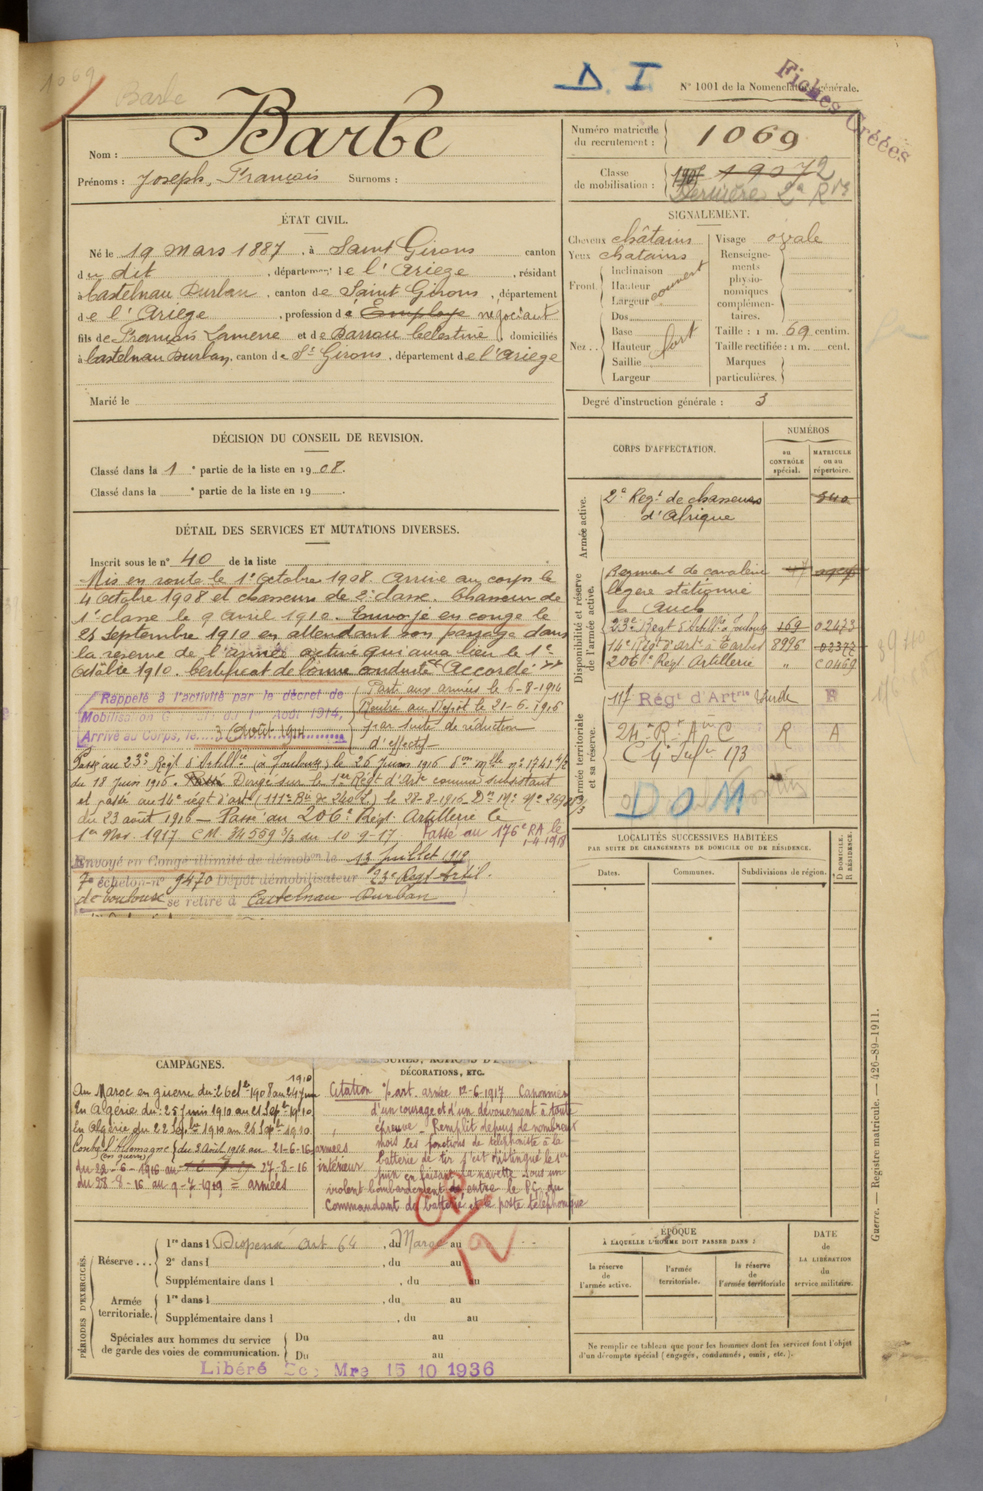 1069
Barbe
Δ I
N° 1001 de la Nomenclature générale.
Fiches Créées
Nom : Barbe
Prénoms : Joseph, François Surnoms :
Numéro matricule du recrutement : 1069
Classe de mobilisation : 1907 2
Dernière 2e Rve
ÉTAT CIVIL.
Né le 19 mars 1887, à Saint Girons canton
du dit, département de l'Ariège, résidant
à Castelnau Durban, canton de Saint Girons, département
de l'Ariège, profession de Employé négociant
fils de François Lamere et de Barrau Celestine, domiciliés
à Castelnau Durban, canton de St Girons, département de l'Ariège
Marié le
SIGNALEMENT.
Cheveux châtains
Yeux châtains
Front. Inclinaison
Hauteur
Largeur
couvert
Nez.. Dos
Base
Hauteur
Saillie
Largeur
fort
Visage ovale
Renseignements physionomiques complémentaires.
Taille : 1 m. 69 centim.
Taille rectifiée : 1 m. cent.
Marques particulières.
Degré d'instruction générale : 3
DÉCISION DU CONSEIL DE REVISION.
Classé dans la 1e partie de la liste en 1908.
Classé dans la e partie de la liste en 19 .
DÉTAIL DES SERVICES ET MUTATIONS DIVERSES.
Inscrit sous le n° 40 de la liste
Mis en route le 1er Octobre 1908. Arrivé au corps le
4 Octobre 1908 et chasseur de 2e classe. Chasseur de
1e classe le 9 avril 1910. Envoyé en congé le
24 Septembre 1910 en attendant son passage dans
la réserve de l'armée active qui aura lieu le 1er
Octobre 1910. Certificat de bonne conduite Accordé.
Rappelé à l'activité par le décret de
Mobilisation Générale du 1er Août 1914,
Arrivé au Corps, le 3 Août 1914
Parti aux armées le 6-8-1914
Rentré au Dépôt le 21-6-1916
par suite de réduction
d'effectif
Passé au 23e Regt d'Artillie (à Toulouse) le 26 juin 1916
du 18 Juin 1916. Dirigé sur le 1er Régt d'Artie comme subsistant
et passé au 14e régt d'artie (111e Bie de 240 L) le 28-8-1916
du 23 août 1916 — Passé au 206e Regt Artillerie le
1er Nov. 1917 CM 34559 3/3 du 10-9-17 Passé au 176e RA le
1-4-1918
Envoyé en Congé illimité de démobon le 13 juillet 1919
7e échelon n° 9470 Dépôt démobilisateur 23e Regt Artil.
de Toulouse se retire à Castelnau Durban
CORPS D'AFFECTATION.
NUMÉROS
au CONTRÔLE spécial.
MATRICULE ou au répertoire.
Armée active.
2e Regt de chasseurs
d'Afrique
Disponibilité et réserve de l'armée active.
Régiment de cavalerie
légère stationné
à Auch
23e Regt d'Artillie Toulouse 169 02473
14e Régt d'art à Tarbes 8996 02372
206e Regt Artillerie " C0469
Armée territoriale et sa réserve.
117 Régt d'Artrie Lourde
24e R A C R A
DOM
LOCALITÉS SUCCESSIVES HABITÉES
PAR SUITE DE CHANGEMENTS DE DOMICILE OU DE RÉSIDENCE.
Dates. Communes. Subdivisions de région. D DOMICILE. R RÉSIDENCE.
CAMPAGNES.
Au Maroc en guerre du 2 Octbre 1908 au 24 Juin 1910
En Algérie du 25 Juin 1910 au 21 Septbre 1910
En Algérie du 22 Septbre 1910 au 26 Septbre 1910.
Contre l'Allemagne du 3 Août 1914 au 21-6-16 armées
(en guerre)
du 22-6-1916 au 27-8-16 intérieur
du 28-8-16 au 9-7-1919 = armées
DÉCORATIONS, ETC.
Citation art. armée 12-6-1917 Canonnier
d'un courage et d'un dévouement à toute
épreuve. Remplit depuis de nombreux
mois les fonctions de téléphoniste à la
batterie de tir s'est distingué le 1er
juin en faisant la navette sous un
violent bombardement entre le PC du
Commandant de batterie et le poste téléphonique
CR
12
PÉRIODES D'EXERCICES.
Réserve ... 1re dans l Dispensé art. 64, du Maroc au
2e dans l , du au
Supplémentaire dans l , du au
Armée territoriale. 1re dans l , du au
Supplémentaire dans l , du au
Spéciales aux hommes du service de garde des voies de communication. Du au
Du au
Libéré Mre 15 10 1936
ÉPOQUE
À LAQUELLE L'HOMME DOIT PASSER DANS :
la réserve de l'armée active.
l'armée territoriale.
la réserve de l'armée territoriale
DATE de LA LIBÉRATION du service militaire.
Ne remplir ce tableau que pour les hommes dont les services font l'objet
d'un décompte spécial (engagés, condamnés, omis, etc.).
Guerre. — Registre matricule. — 426-89-1911.